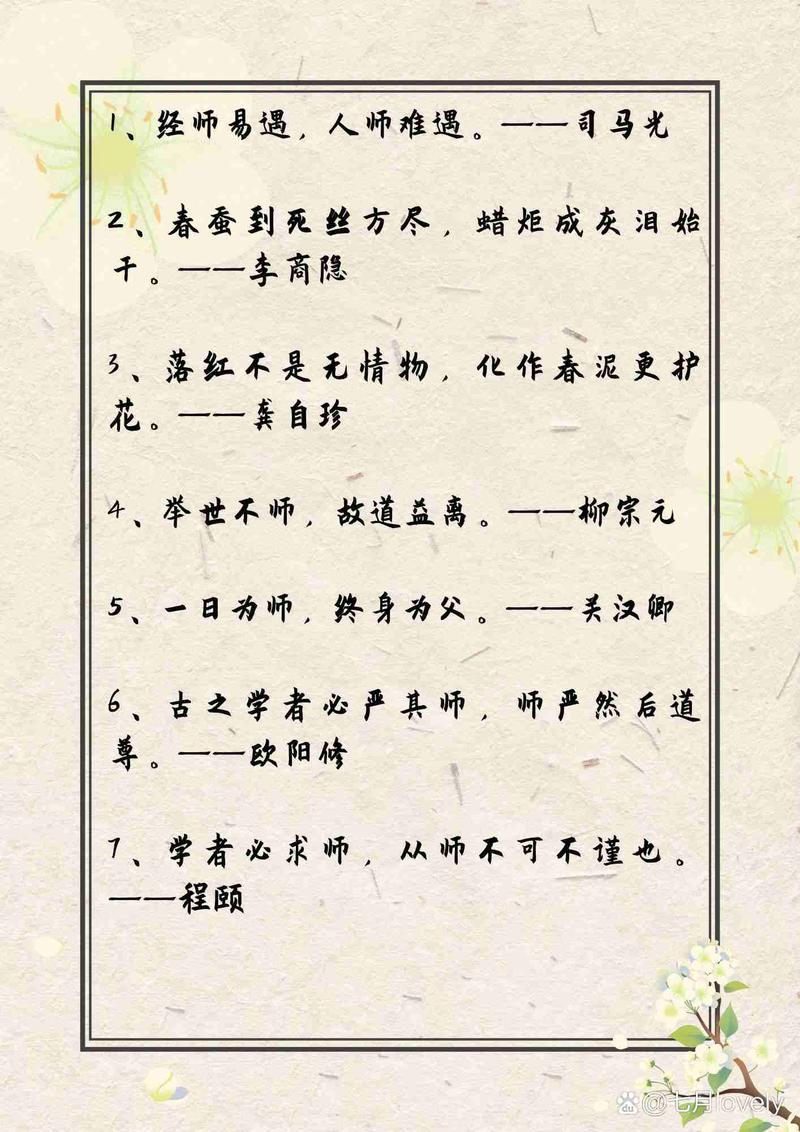 1、经师易遇，人师难遇。——司马光
2、春蚕到死丝方尽，蜡炬成灰泪始
干。——李商隐
3、落红不是无情物，化作春泥更护
花。——龚自珍
4、举世不师，故道益离。——柳宗元
5、一日为师，终身为父。——关汉卿
6、古之学者必严其师，师严然后道
尊。——欧阳修
7、学者必求师，从师不可不谨也。
——程颐
du @七月lovely